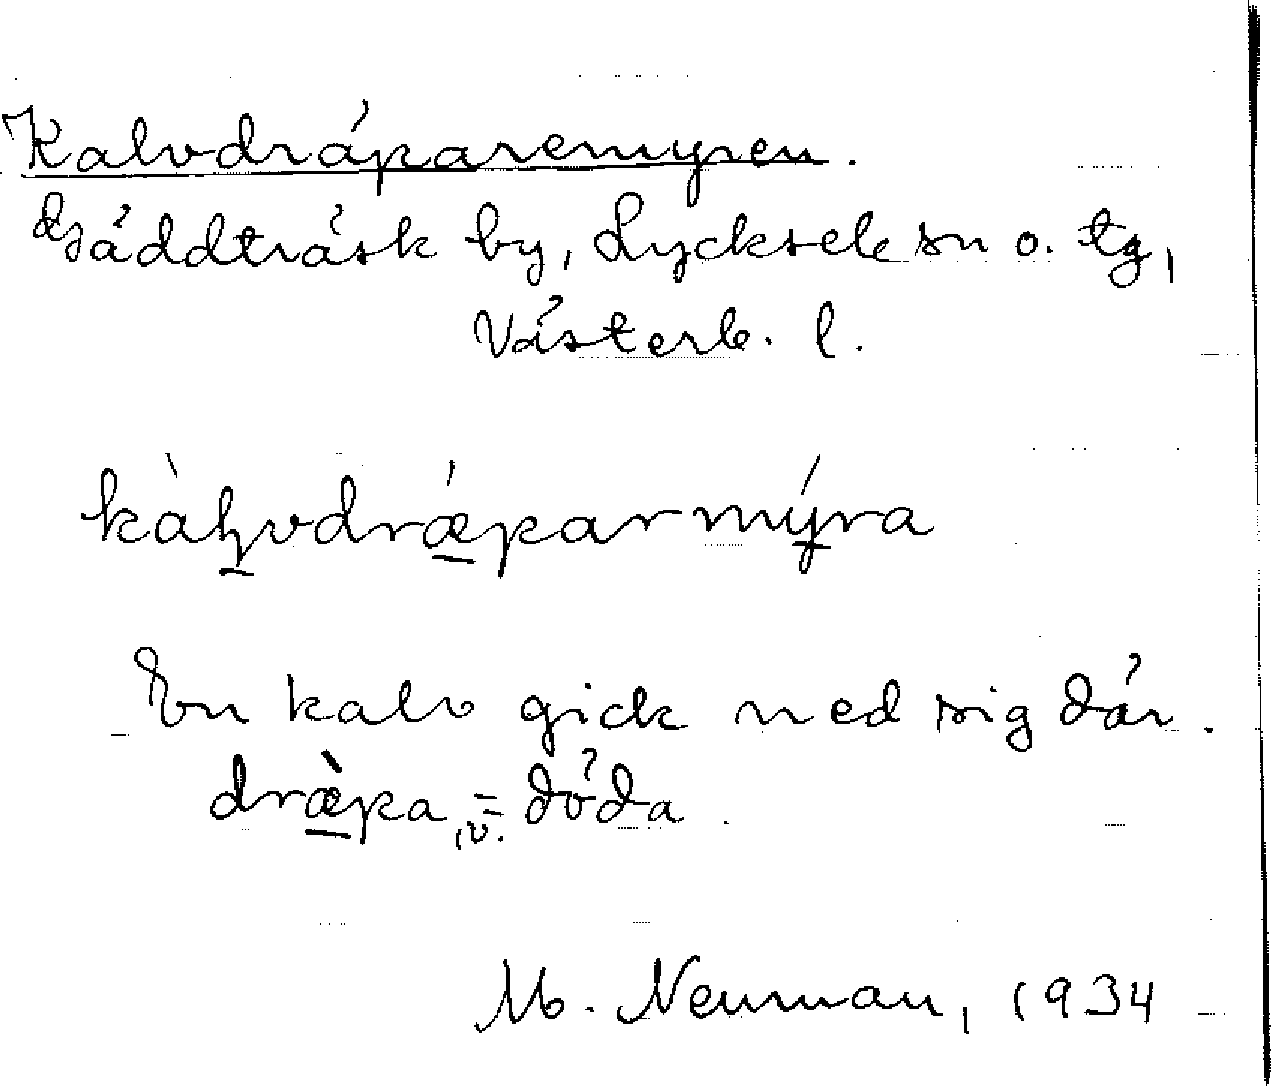 Kalvdräparemyren.
Gäddträsk by, Lycksele sn o. tg,
Västerb. l.
kàl̥vdrǽparmýra
En kalv gick ned sig där.
dræ̀pa, v. = döda.
M. Neuman, 1934